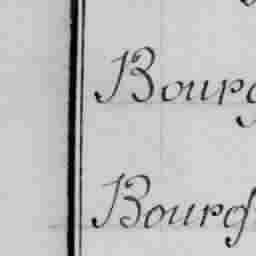 Bourg
Bourg